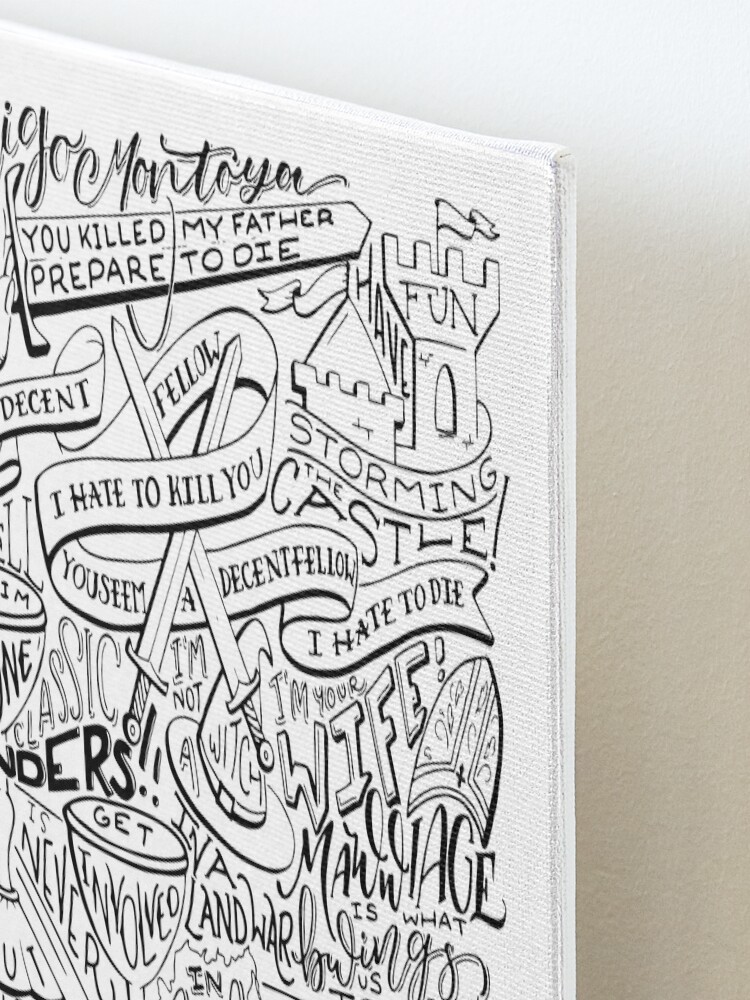 igo Montoya
YOU KILLED MY FATHER
PREPARE TO DIE
HAVE
FUN
STORMING
THE
CASTLE!
DECENT
FELLOW
I HATE TO KILL YOU
YOU SEEM A DECENT FELLOW
I HATE TO DIE
IM
NE
CLASSIC
NDERS!!
I'M
NOT
A WITCH
I'M YOUR
WIFE!
MAWWIAGE
IS WHAT
bwings
US
IS
NEVER
GET
INVOLVED
IN A
LAND WAR
IN